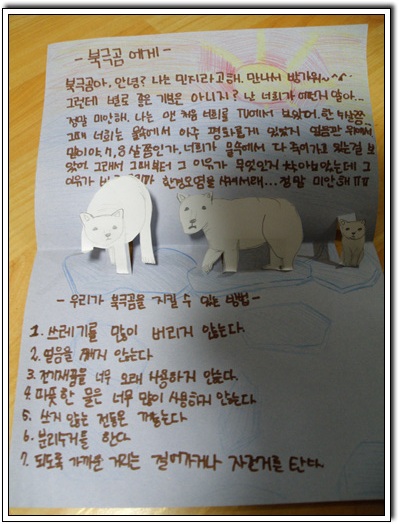 - 북극곰 에게 -
북극곰아, 안녕? 나는 민지라고해. 만나서 반가워~^^
그런데 별로 좋은 기분은 아니지? 난 너희가 어떤지 알아...
정말 미안해. 나는 맨 처음 너희를 TV에서 보았어. 한 4살쯤..
그때 너희는 얼음에서 아주 평화롭게 있었지 얼음판 위에서
말이야. 7, 8살쯤인가, 너희가 얼음에서 다 죽어가고 있는걸 보
았어. 그래서 그때부터 그 이유가 무엇인지 찾아보았는데 그
이유가 환경오염을 시켜서래... 정말 미안해 ㅠㅠ
- 우리가 북극곰을 지킬 수 있는 방법 -
1. 쓰레기를 많이 버리지 않는다.
2. 얼음을 깨지 않는다.
3. 전기제품을 너무 오래 사용하지 않는다.
4. 따뜻한 물은 너무 많이 사용하지 않는다.
5. 쓰지 않는 전등은 끄는다.
6. 분리수거를 한다.
7. 되도록 가까운 거리는 걸어가거나 자전거를 탄다.